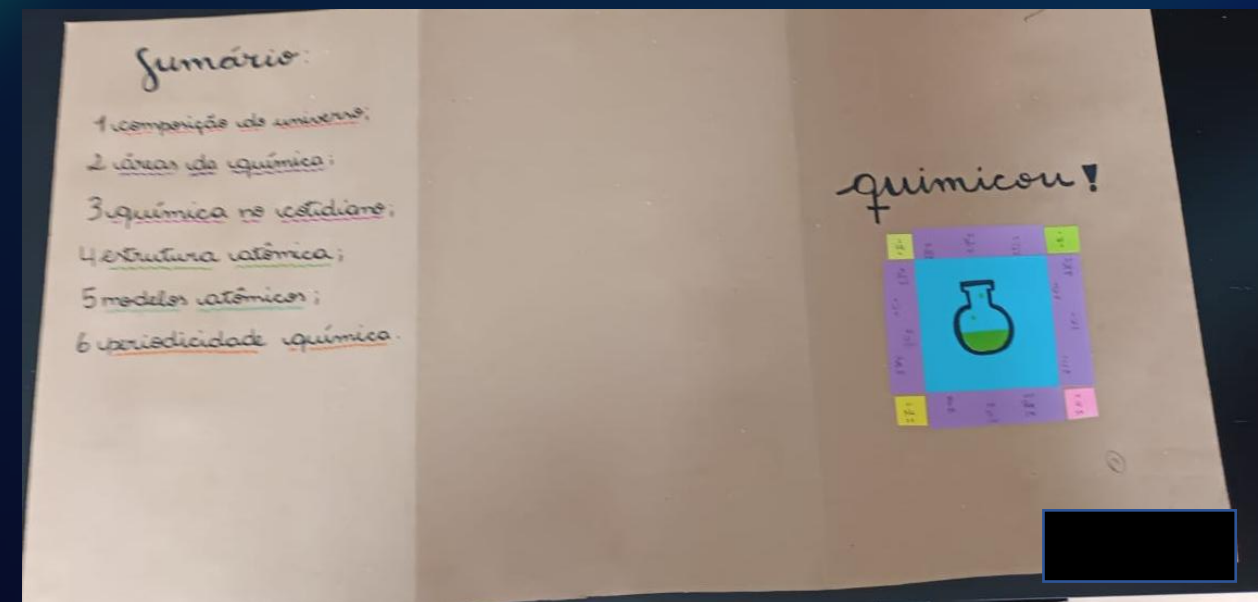 Sumário:
1 composição do universo;
2 áreas da química;
3 química no cotidiano;
4 estrutura atômica;
5 modelos atômicos;
6 periodicidade química.
quimicou!